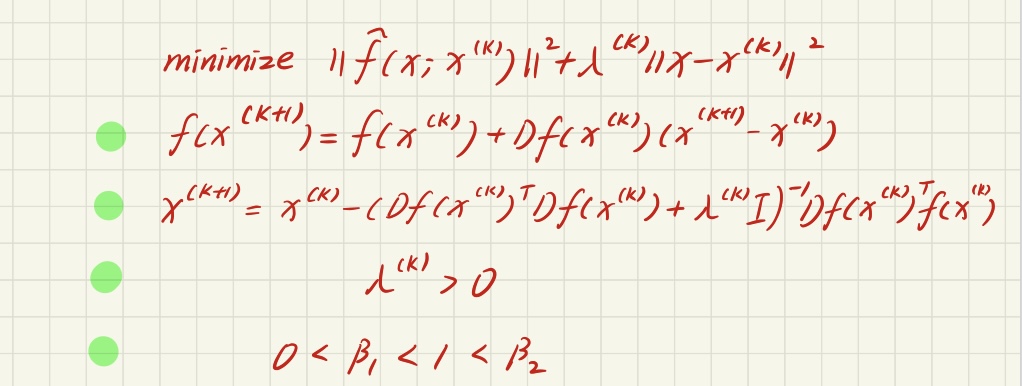 minimize ‖f̂(x; x^(k))‖² + λ^(k)‖x − x^(k)‖²
f(x^(k+1)) = f(x^(k)) + Df(x^(k))(x^(k+1) − x^(k))
x^(k+1) = x^(k) − (Df(x^(k))^T Df(x^(k)) + λ^(k)I)^−1 Df(x^(k))^T f(x^(k))
λ^(k) > 0
0 < β₁ < 1 < β₂